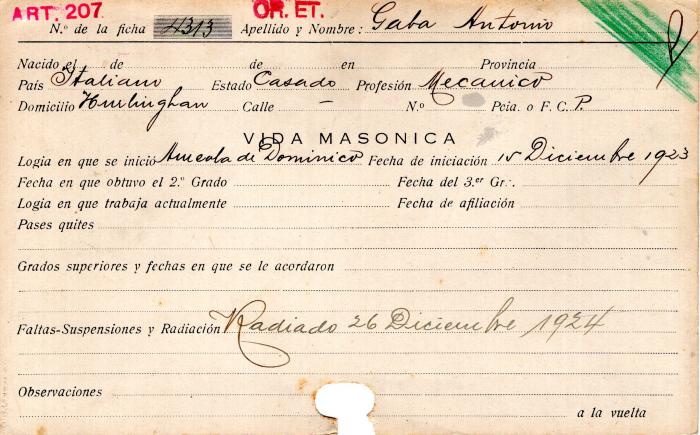 ART. 207 OR. ET.
N.º de la ficha 4313 Apellido y Nombre: Gaba Antonio
Nacido el de de en Provincia
País Italiano Estado Casado Profesión Mecanico
Domicilio Hurlinghan Calle – N.º Pcia. o F. C. P.
VIDA MASONICA
Logia en que se inició Aureola de Dominico Fecha de iniciación 15 Diciembre 1923
Fecha en que obtuvo el 2.º Grado Fecha del 3.er Gr.·.
Logia en que trabaja actualmente Fecha de afiliación
Pases quites
Grados superiores y fechas en que se le acordaron
Faltas-Suspensiones y Radiación Radiado 26 Diciembre 1924
Observaciones
a la vuelta